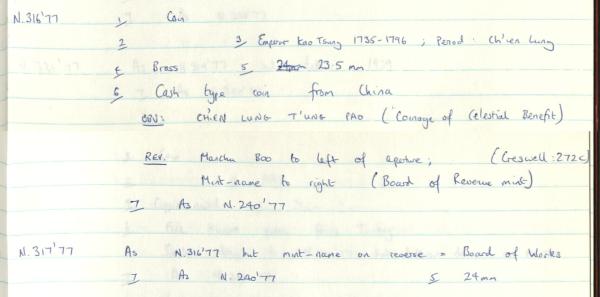 N.316'77 1 Coin
2 3 Emperor Kao Tsung 1735-1796 ; Period Ch'ien Lung
4 Brass 5 24mm 23.5 mm
6 Cash type coin from China
OBV: CH'IEN LUNG T'UNG PAO ("Coinage of Celestial Benefit)
REV: Manchu Boo to left of aperture ; (Creswell : 272c)
Mint-name to right (Board of Revenue mint)
7 As N.240'77
N.317'77 As N.316'77 but mint-name on reverse = Board of Works
7 As N.240'77 5 24mm